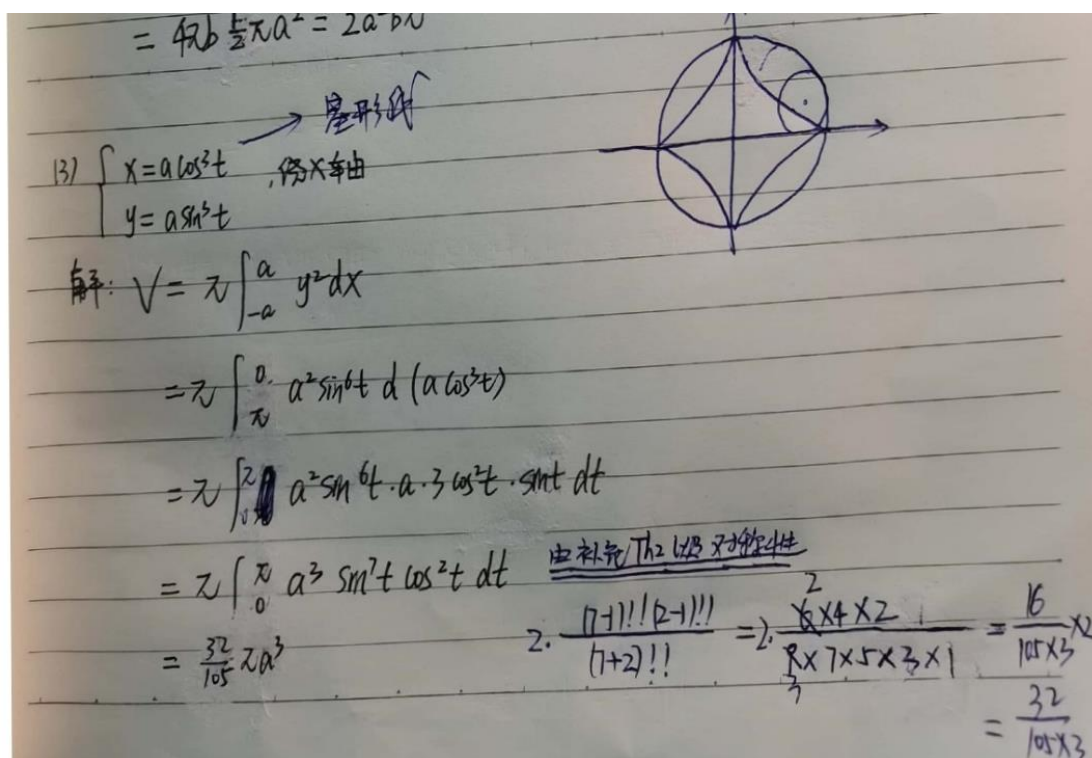 = 4πb ½πa² = 2a²bπ
→ 星形线
(3) { x = a cos³t , 绕x轴
y = a sin³t
解: V = π∫_{-a}^{a} y²dx
= π∫_{π}^{0} a² sin⁶t d(a cos³t)
= π∫_{0}^{π} a² sin⁶t · a · 3cos²t · sint dt
= π∫_{0}^{π} a³ sin⁷t cos²t dt 由补充Th2 对称性
= 32/105 πa³ 2· (7-1)!!(2-1)!!/(7+2)!! = 2· 6×4×2/9×7×5×3×1 = 16/105×3 ×2
= 32/105×3